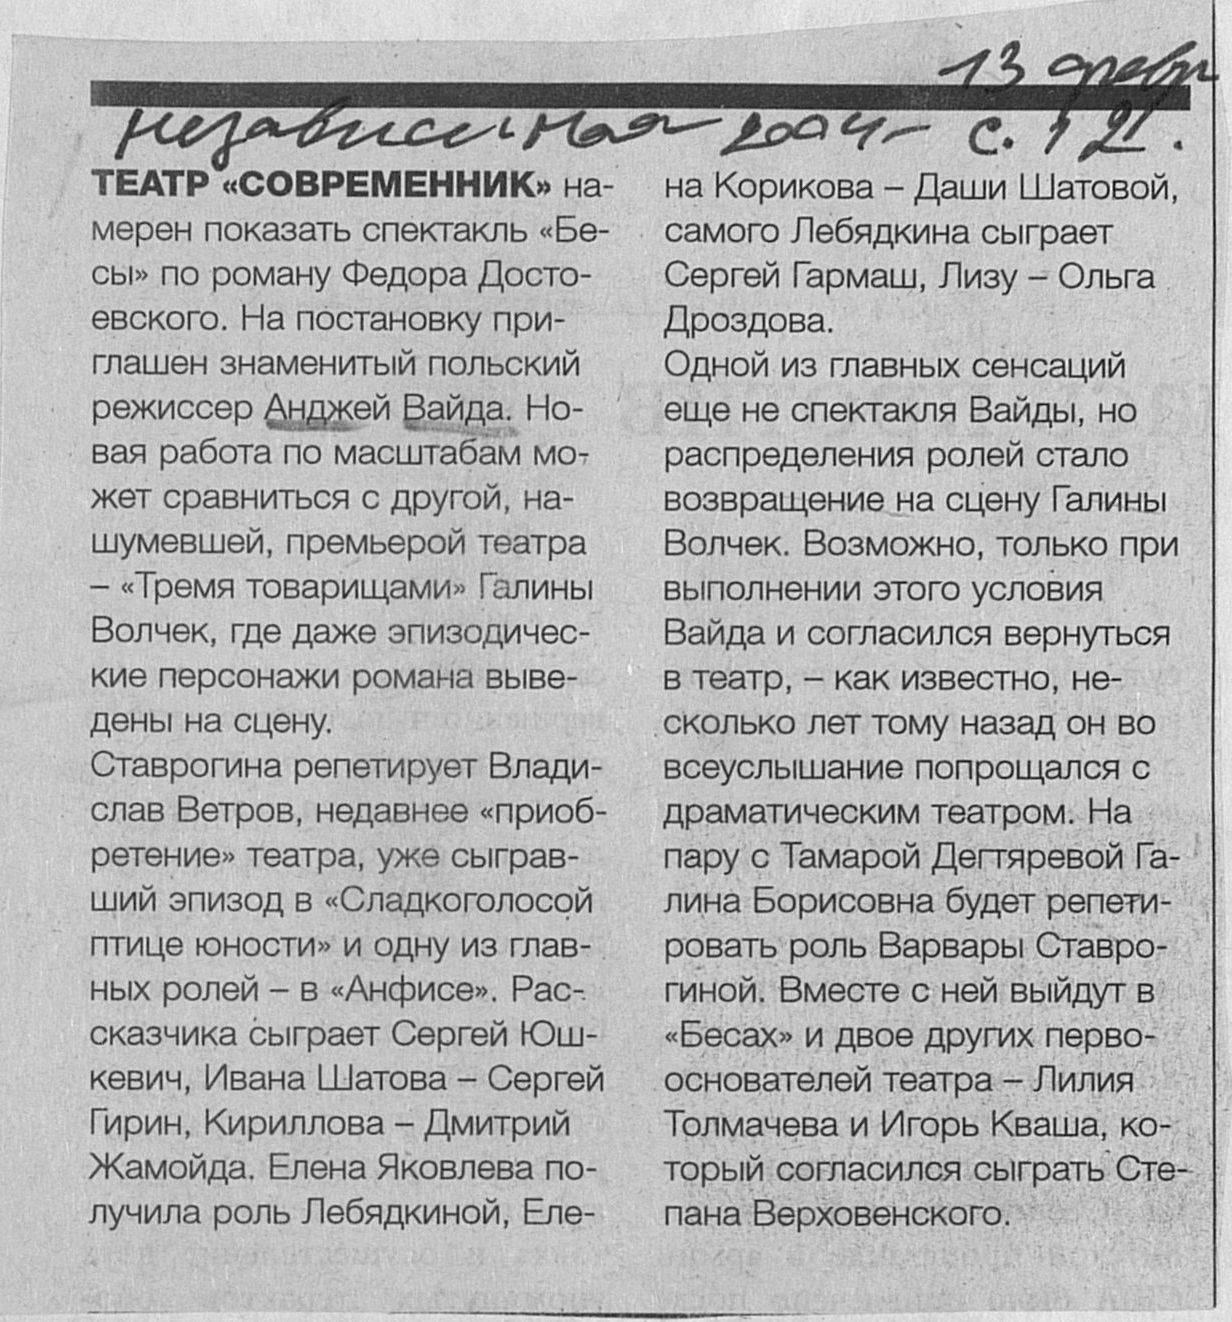 13 февр
Независимая 2004 – с. 12.
ТЕАТР «СОВРЕМЕННИК» на-
мерен показать спектакль «Бе-
сы» по роману Федора Досто-
евского. На постановку при-
глашен знаменитый польский
режиссер Анджей Вайда. Но-
вая работа по масштабам мо-
жет сравниться с другой, на-
шумевшей, премьерой театра
– «Тремя товарищами» Галины
Волчек, где даже эпизодичес-
кие персонажи романа выве-
дены на сцену.
Ставрогина репетирует Влади-
слав Ветров, недавнее «приоб-
ретение» театра, уже сыграв-
ший эпизод в «Сладкоголосой
птице юности» и одну из глав-
ных ролей – в «Анфисе». Рас-
сказчика сыграет Сергей Юш-
кевич, Ивана Шатова – Сергей
Гирин, Кириллова – Дмитрий
Жамойда. Елена Яковлева по-
лучила роль Лебядкиной, Еле-
на Корикова – Даши Шатовой,
самого Лебядкина сыграет
Сергей Гармаш, Лизу – Ольга
Дроздова.
Одной из главных сенсаций
еще не спектакля Вайды, но
распределения ролей стало
возвращение на сцену Галины
Волчек. Возможно, только при
выполнении этого условия
Вайда и согласился вернуться
в театр, – как известно, не-
сколько лет тому назад он во
всеуслышание попрощался с
драматическим театром. На
пару с Тамарой Дегтяревой Га-
лина Борисовна будет репети-
ровать роль Варвары Ставро-
гиной. Вместе с ней выйдут в
«Бесах» и двое других перво-
основателей театра – Лилия
Толмачева и Игорь Кваша, ко-
торый согласился сыграть Сте-
пана Верховенского.